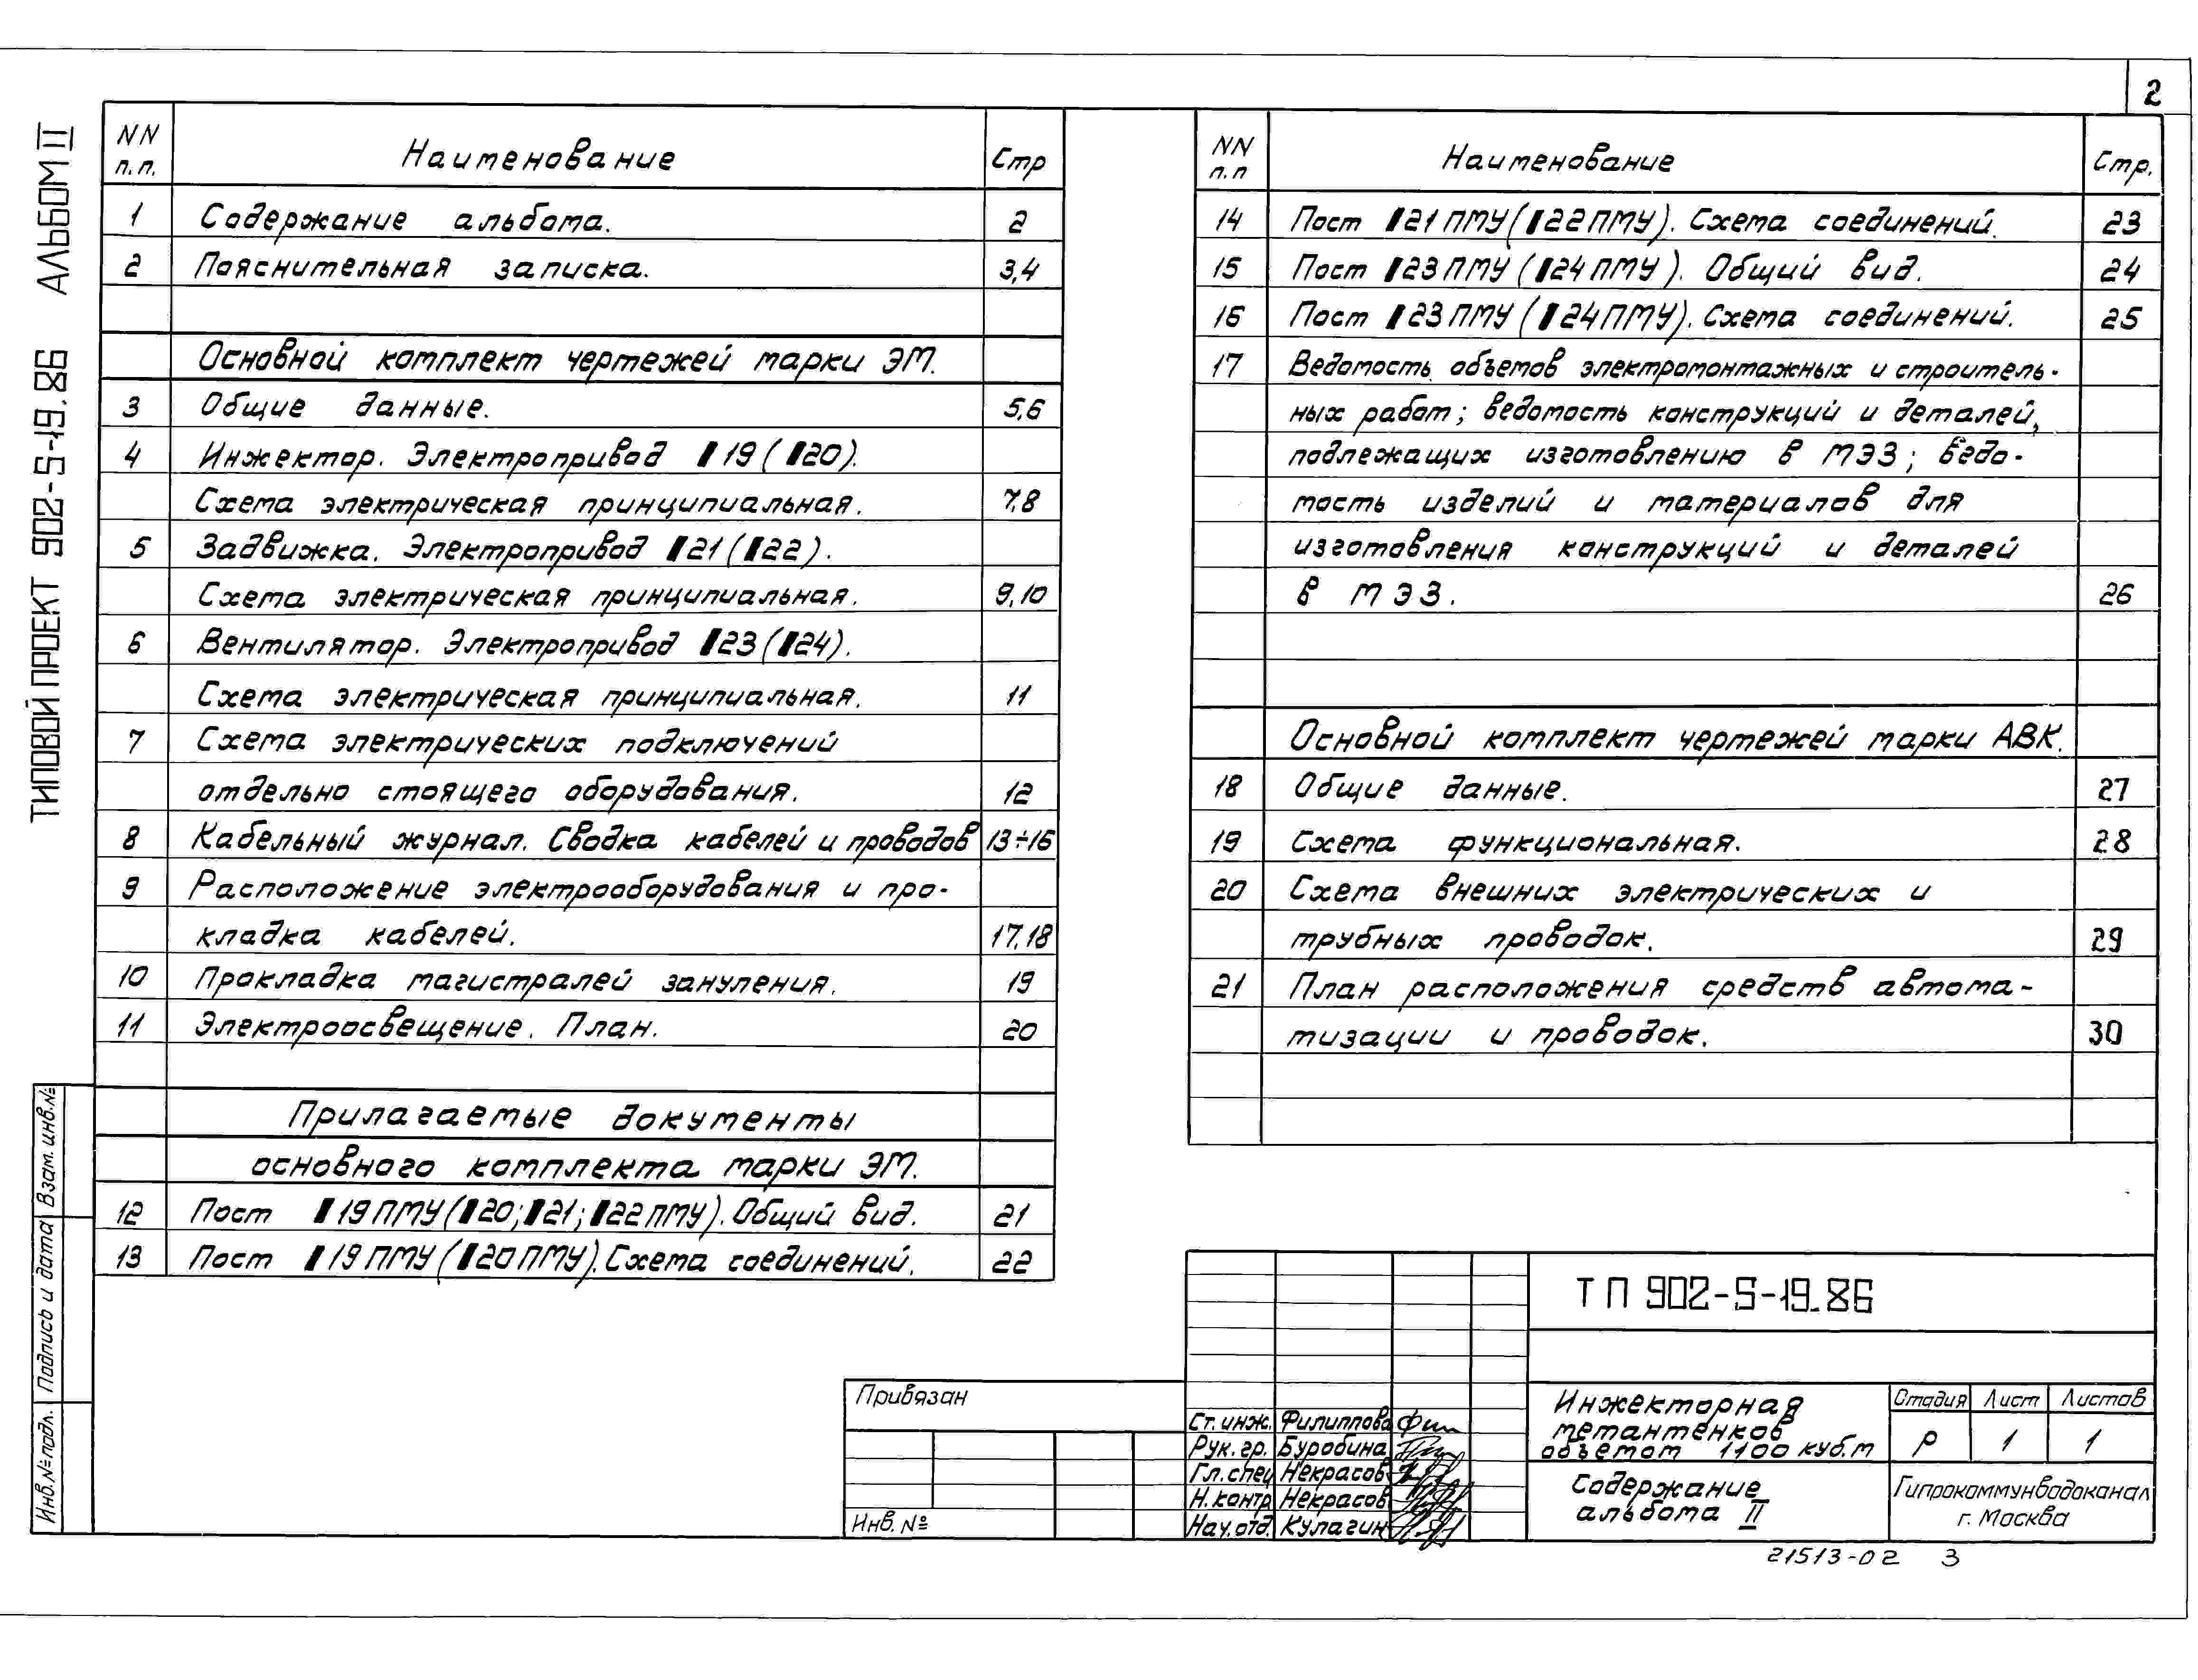 2
ТИПОВОЙ ПРОЕКТ 902-5-19.86 АЛЬБОМ II
NN п.п. Наименование Стр
1 Содержание альбома. 2
2 Пояснительная записка. 3,4
Основной комплект чертежей марки ЭМ.
3 Общие данные. 5,6
4 Инжектор. Электропривод ▮19 (▮20).
Схема электрическая принципиальная. 7,8
5 Задвижка. Электропривод ▮21 (▮22).
Схема электрическая принципиальная. 9,10
6 Вентилятор. Электропривод ▮23 (▮24).
Схема электрическая принципиальная. 11
7 Схема электрических подключений
отдельно стоящего оборудования. 12
8 Кабельный журнал. Сводка кабелей и проводов 13÷16
9 Расположение электрооборудования и про-
кладка кабелей. 17,18
10 Прокладка магистралей зануления. 19
11 Электроосвещение. План. 20
Прилагаемые документы
основного комплекта марки ЭМ.
12 Пост ▮19ПМУ (▮20; ▮21; ▮22ПМУ). Общий вид. 21
13 Пост ▮19ПМУ (▮20ПМУ). Схема соединений. 22
NN п.п Наименование Стр.
14 Пост ▮21ПМУ (▮22ПМУ). Схема соединений. 23
15 Пост ▮23ПМУ (▮24ПМУ). Общий вид. 24
16 Пост ▮23ПМУ (▮24ПМУ). Схема соединений. 25
17 Ведомость объемов электромонтажных и строитель-
ных работ; ведомость конструкций и деталей,
подлежащих изготовлению в МЭЗ; ведо-
мость изделий и материалов для
изготовления конструкций и деталей
в МЭЗ. 26
Основной комплект чертежей марки АВК.
18 Общие данные. 27
19 Схема функциональная. 28
20 Схема внешних электрических и
трубных проводок. 29
21 План расположения средств автома-
тизации и проводок. 30
Взам. инв.№
Подпись и дата
Инв.№подл.
Привязан
Инв. №
Ст. инж. Филиппова
Рук. гр. Буробина
Гл. спец Некрасов
Н. контр Некрасов
Нач. отд. Кулагин
ТП 902-5-19.86
Инжекторная
метантенков
объемом 1100 куб.м
Стадия Лист Листов
Р 1 1
Содержание
альбома II
Гипрокоммунводоканал
г. Москва
21513-02 3